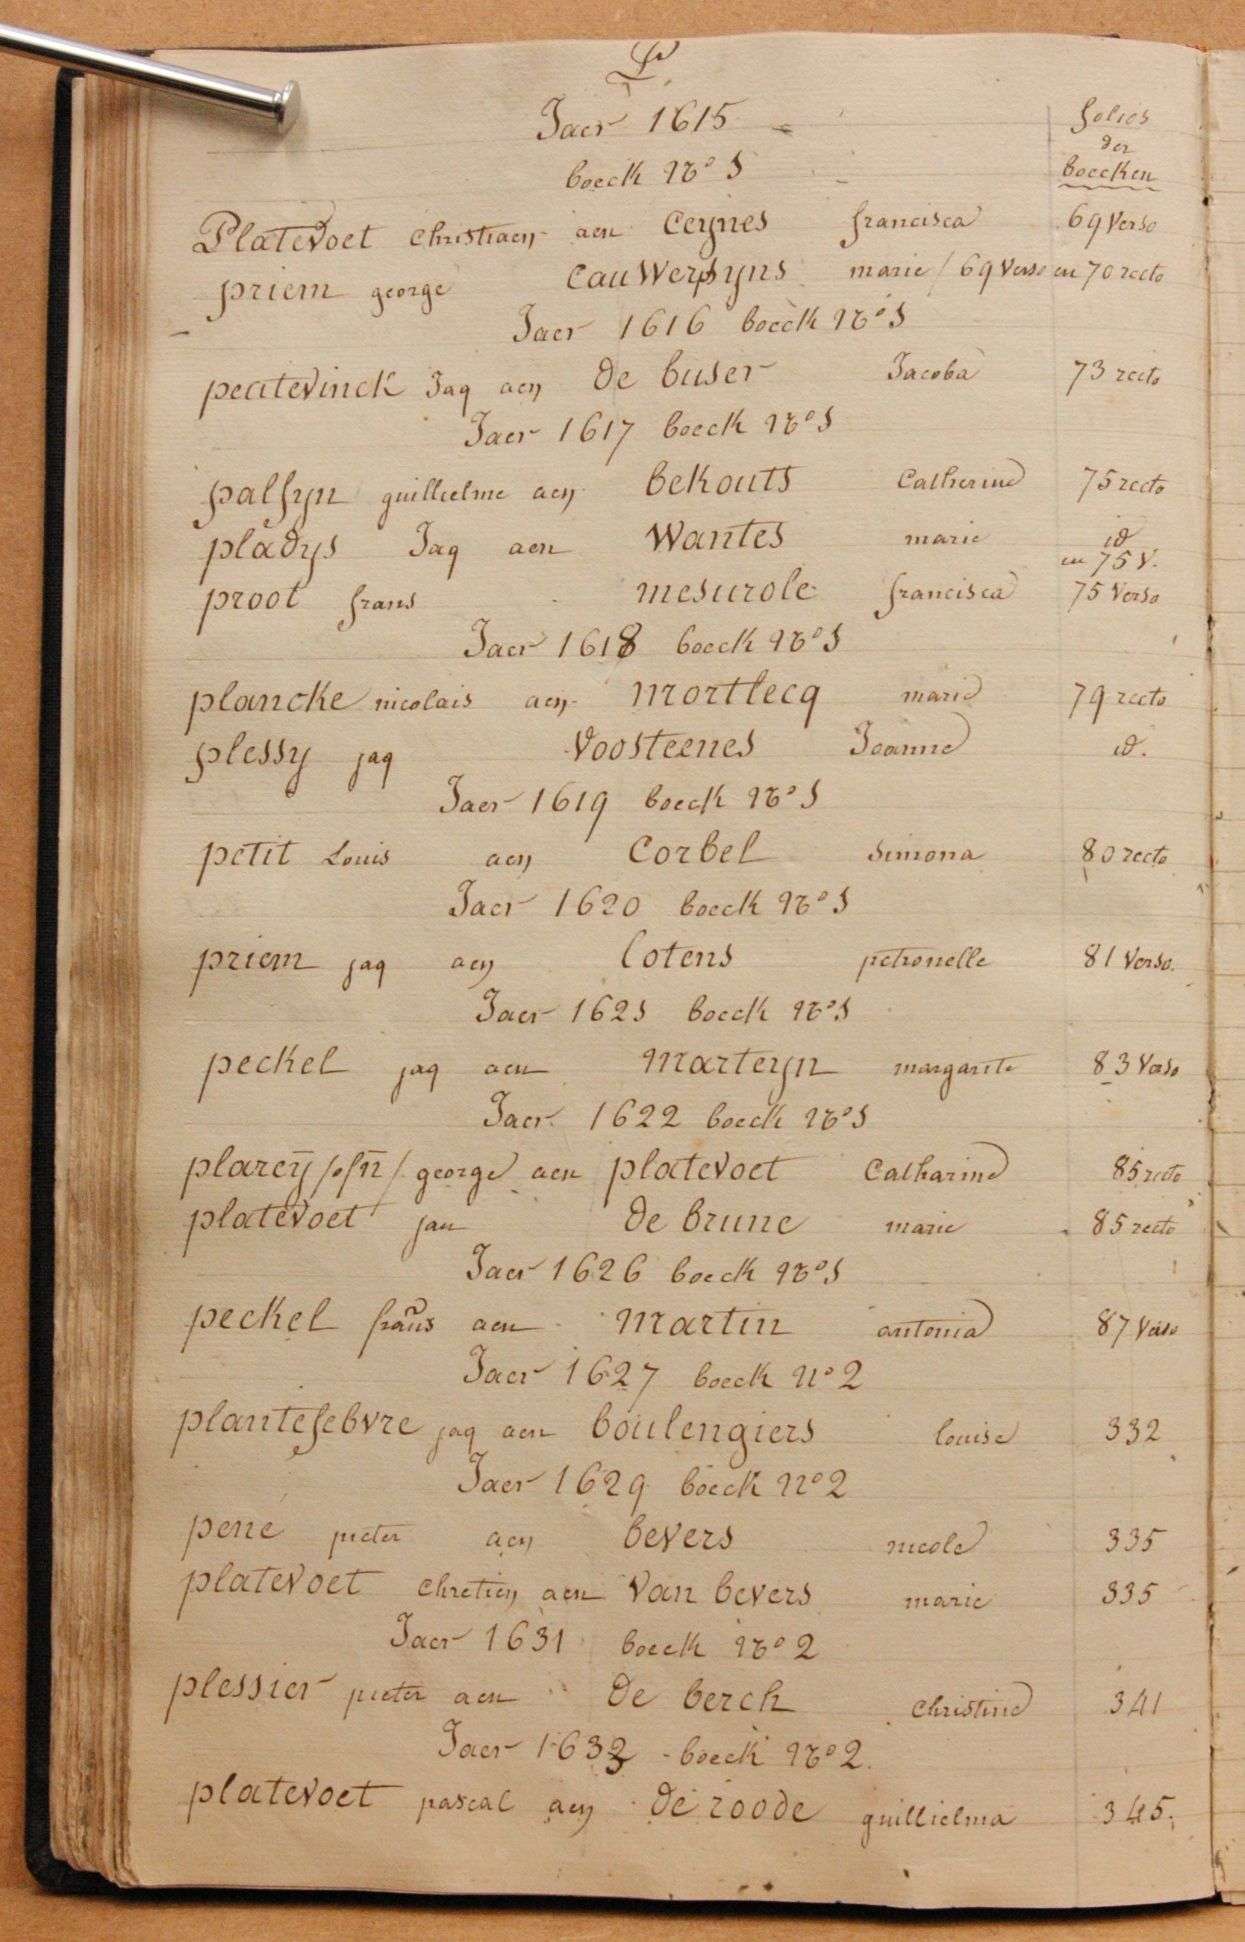 P
Jaer 1615
folios
der
boecken
boeck No 1
Platevoet Christiaen aen Ceynes francisca 69 verso
priem george Cauwersyns marie / 69 verso en 70 recto
Jaer 1616 boeck No 1
peatevinck Jaq aen De buser Jacoba 73 recto
Jaer 1617 boeck No 1
palsyn guillielme aen bekouts Catherine 75 recto
pladys Jaq aen Wantes marie id
en 75 v.
proot frans mesurole francisca 75 verso
Jaer 1618 boeck No 1
plancke nicolais aen mortlecq marie 79 recto
plessy jaq Voosteenes Joanne id.
Jaer 1619 boeck No 1
petit Louis aen Corbel Simona 80 recto
Jaer 1620 boeck No 1
priem jaq aen Cotens petronelle 81 verso.
Jaer 1621 boeck No 1
peckel jaq aen Marteyn margarite 83 verso
Jaer 1622 boeck No 1
plarcy / george aen platevoet Catharine 85 recto
platevoet jan De brune marie 85 recto
Jaer 1626 boeck No 1
peckel frans aen Martin antonia 87 verso
Jaer 1627 boeck No 2
plantefebvre jaq aen boulengiers louise 332
Jaer 1629 boeck No 2
pene pieter aen bevers nicole 335
platevoet Chretien aen Van bevers marie 335
Jaer 1631 boeck No 2
plessier pieter aen De berch Christine 341
Jaer 1632 boeck No 2.
platevoet pascal aen De roode guillielma 345.